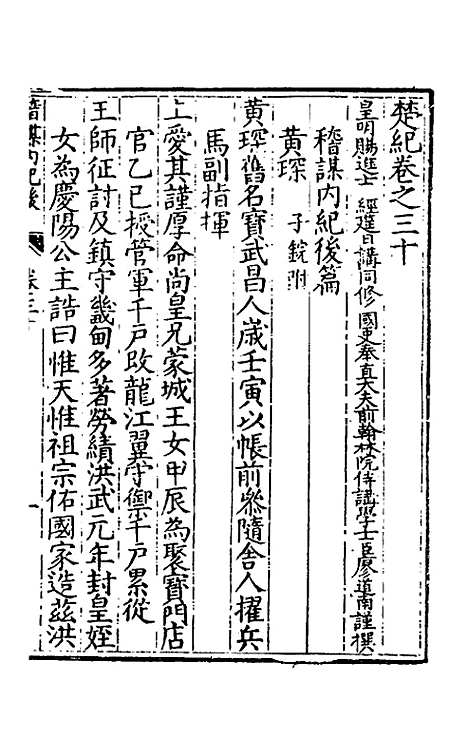 楚紀卷之三十
皇明賜進士 經筵日講同修 國史奉直大夫前翰林院侍講學士臣廖道南謹撰
稽謀内紀後篇
黄琛 子鋭附
黄琛舊名寶武昌人歳壬寅以帳前叅隨舍人擢兵
馬副指揮
上愛其謹厚命尚皇兄蒙城王女甲辰為聚寶門店
官乙巳授管軍千戸改龍江翼守禦千戸累從
王師征討及鎮守畿甸多著勞績洪武元年封皇姪
女為慶陽公主誥曰惟天惟祖宗佑國家造兹洪